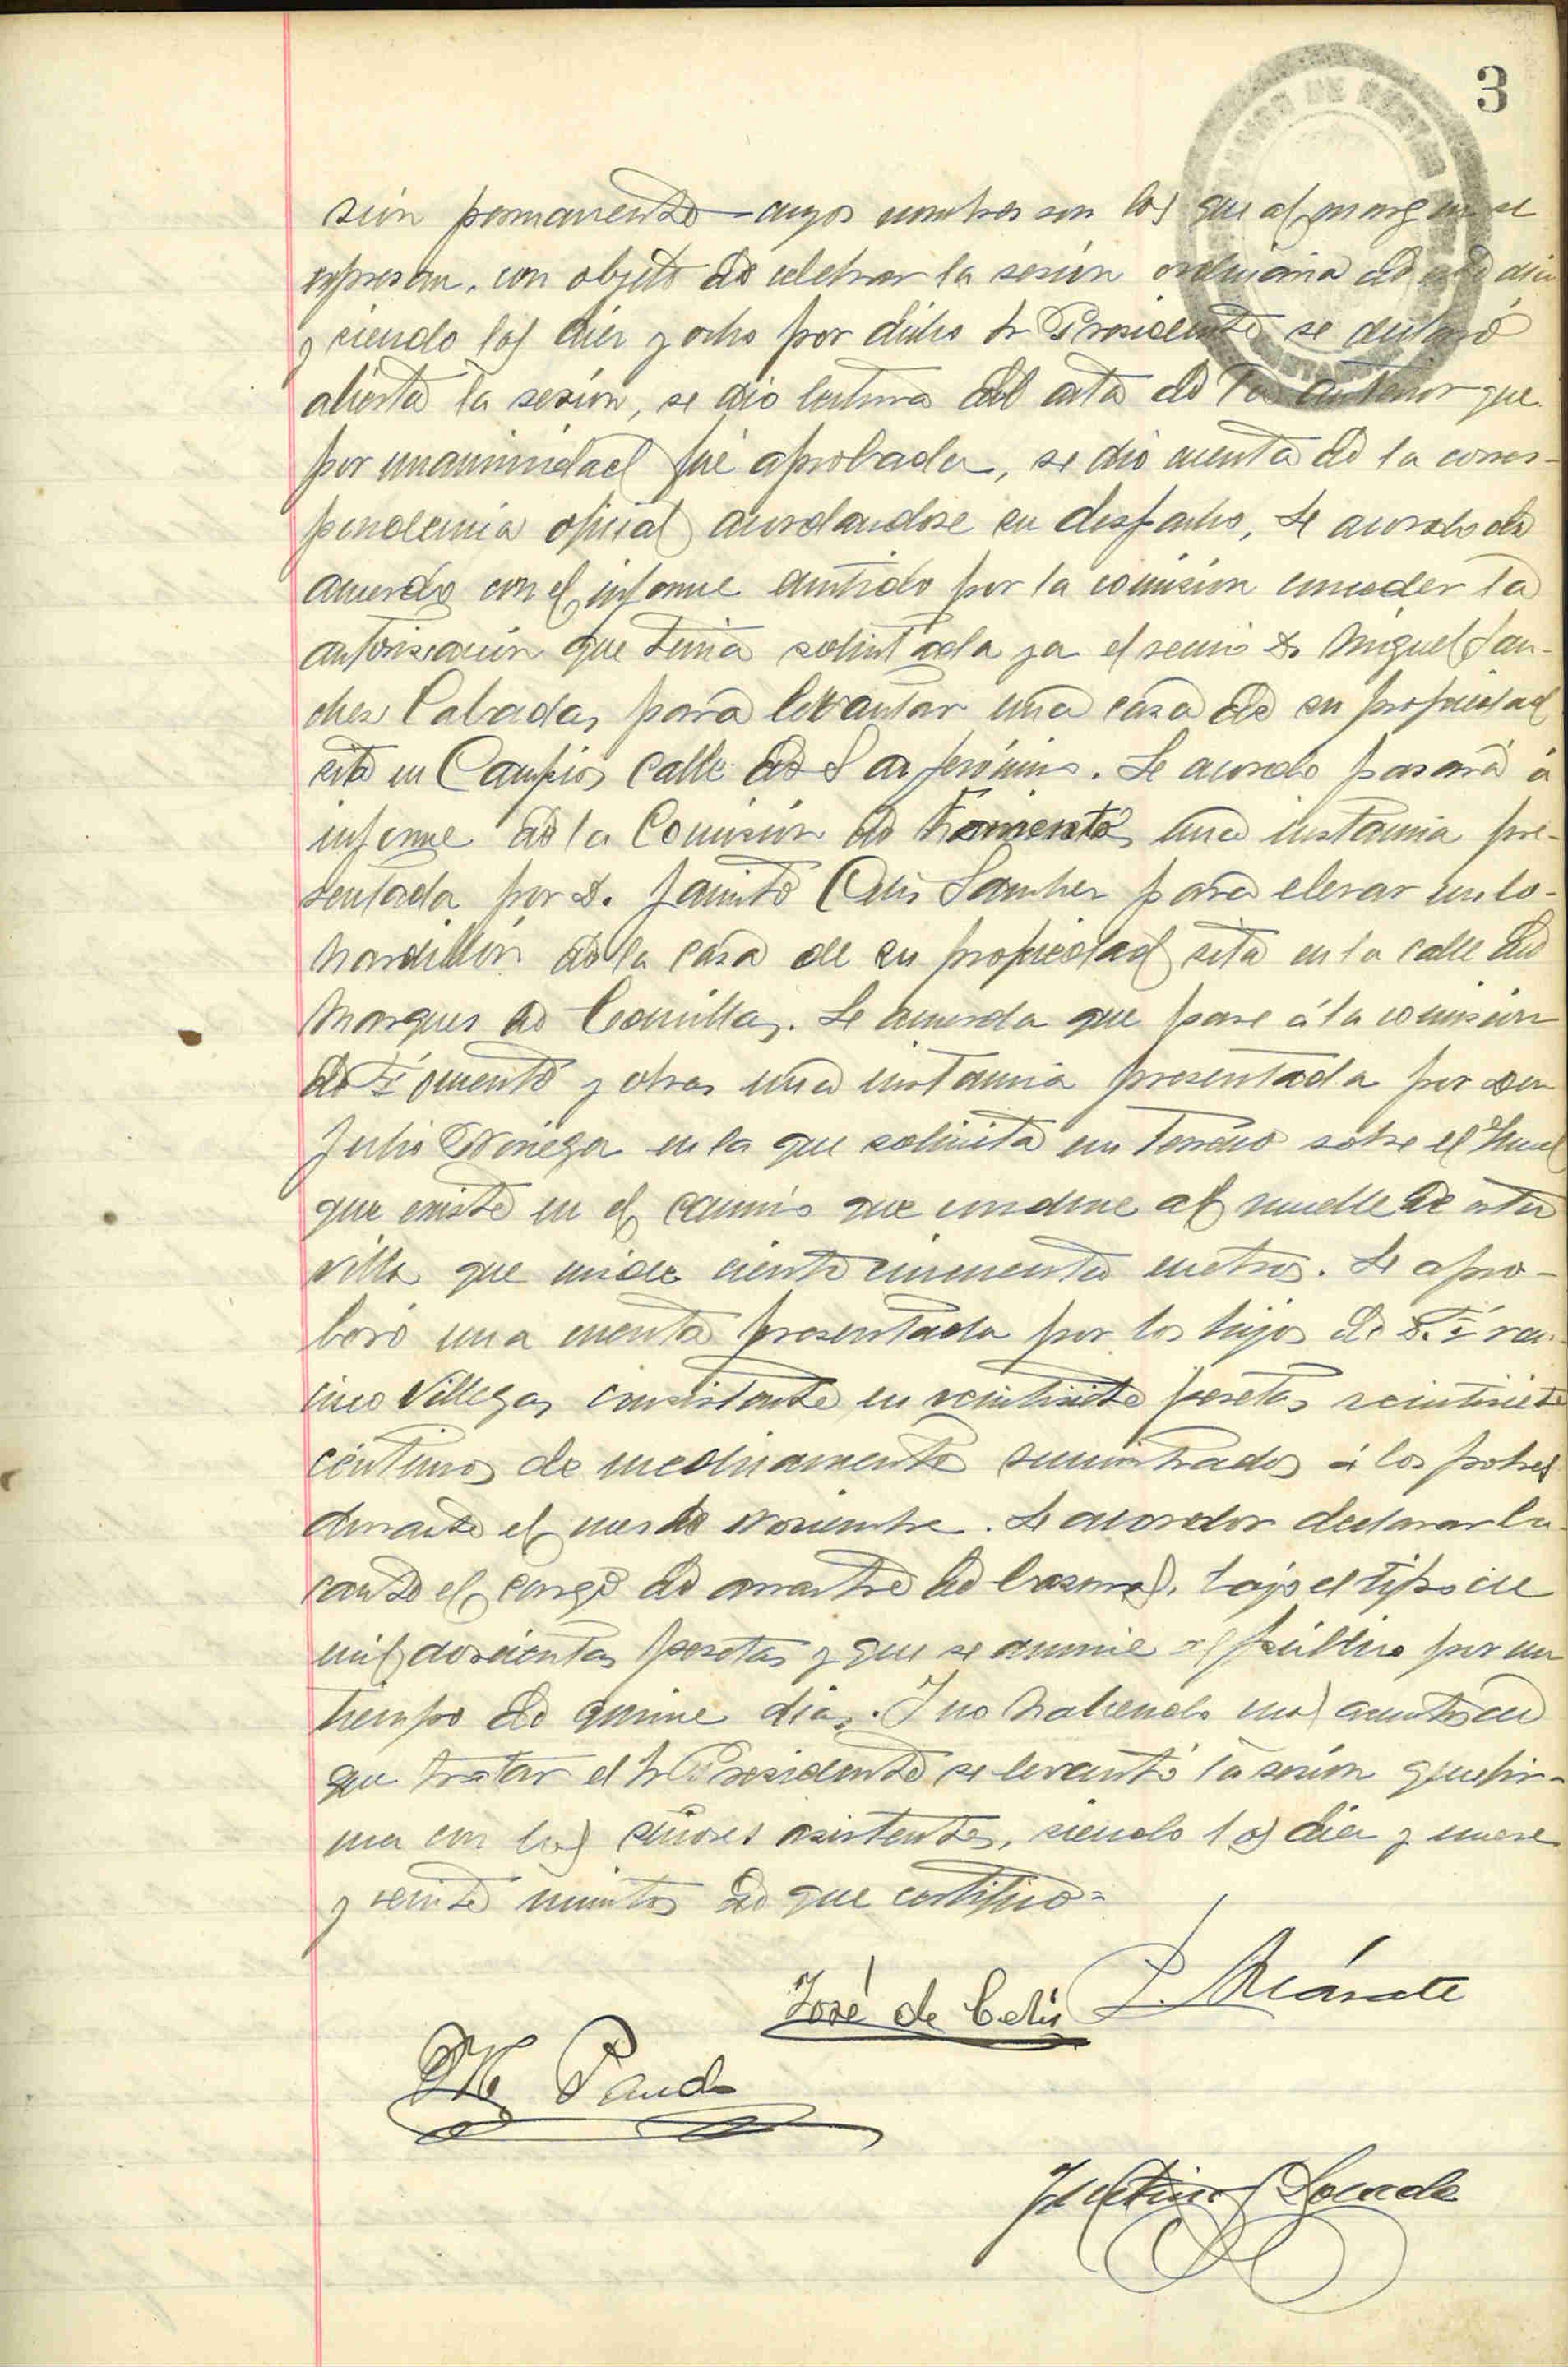 3
sión permanente cuyos nombres son los que al margen se
expresan, con objeto de celebrar la sesión ordinaria de este dia
y siendo las diez y ocho por dicho Sr Presidente se declaró
abierta la sesión, se dió lectura del acta de la anterior que
por unanimidad fué aprobada, se dió cuenta de la corres-
pondencia oficial acordandose su despacho, Se acordo de
acuerdo con el informe emitido por la comisión conceder la
autorización que tenia solicitada ya el vecino D. Miguel San-
chez Cabadas para levantar una casa de su propiedad
sita en Campios calle de San Jerónimo. Se acordo pasara á
informe de la Comisión de Fomento una instancia pre-
sentada por D. Jacinto Celis Sanchez para elevar un
hardillón de la casa de su propiedad sita en la calle del
Marques de Comillas. Se acuerda que pase á la comisión
de Fomento y obras una instancia presentada por Don
Julio Noriega en la que solicita un terreno sobre el Tunel
que existe en el camino que conduce al muelle de esta
villa que mide ciento cincuenta metros. Se apro-
boró una cuenta presentada por los hijos de D. Fran-
cisco Villegas consistente en veintisiete pesetas veintisiete
céntimos de medicamentos suministrados á los pobres
durante el mes de Noviembre. Se acordor declarar ba-
cante el cargo de arrastre de basuras, bajo el tipo de
mil doscientas pesetas y que se anuncie al público por un
tiempo de quince dias. Y no habiendo mas asuntos de
que tratar el Sr Presidente se levantó la sesión que fir-
ma con los señores asistentes, siendo las diez y nueve
y veinte minutos de que certifico=
José de Celis
M. Pando